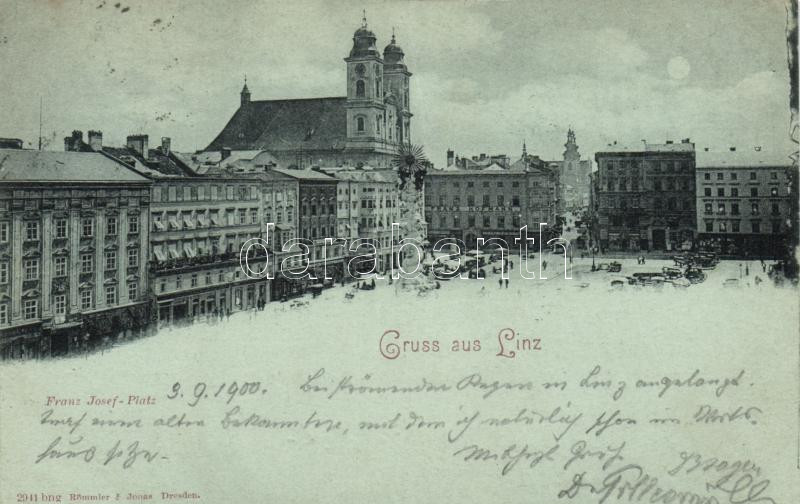 darabanth
Gruss aus Linz
Franz Josef-Platz 3.9.1900. Bei strömendem Regen in Linz angelangt.
traf einen alten Bekannten, mit dem ich natürlich schon im Wirts-
haus sitze.
Gruß
2941 bng Römmler & Jonas Dresden.